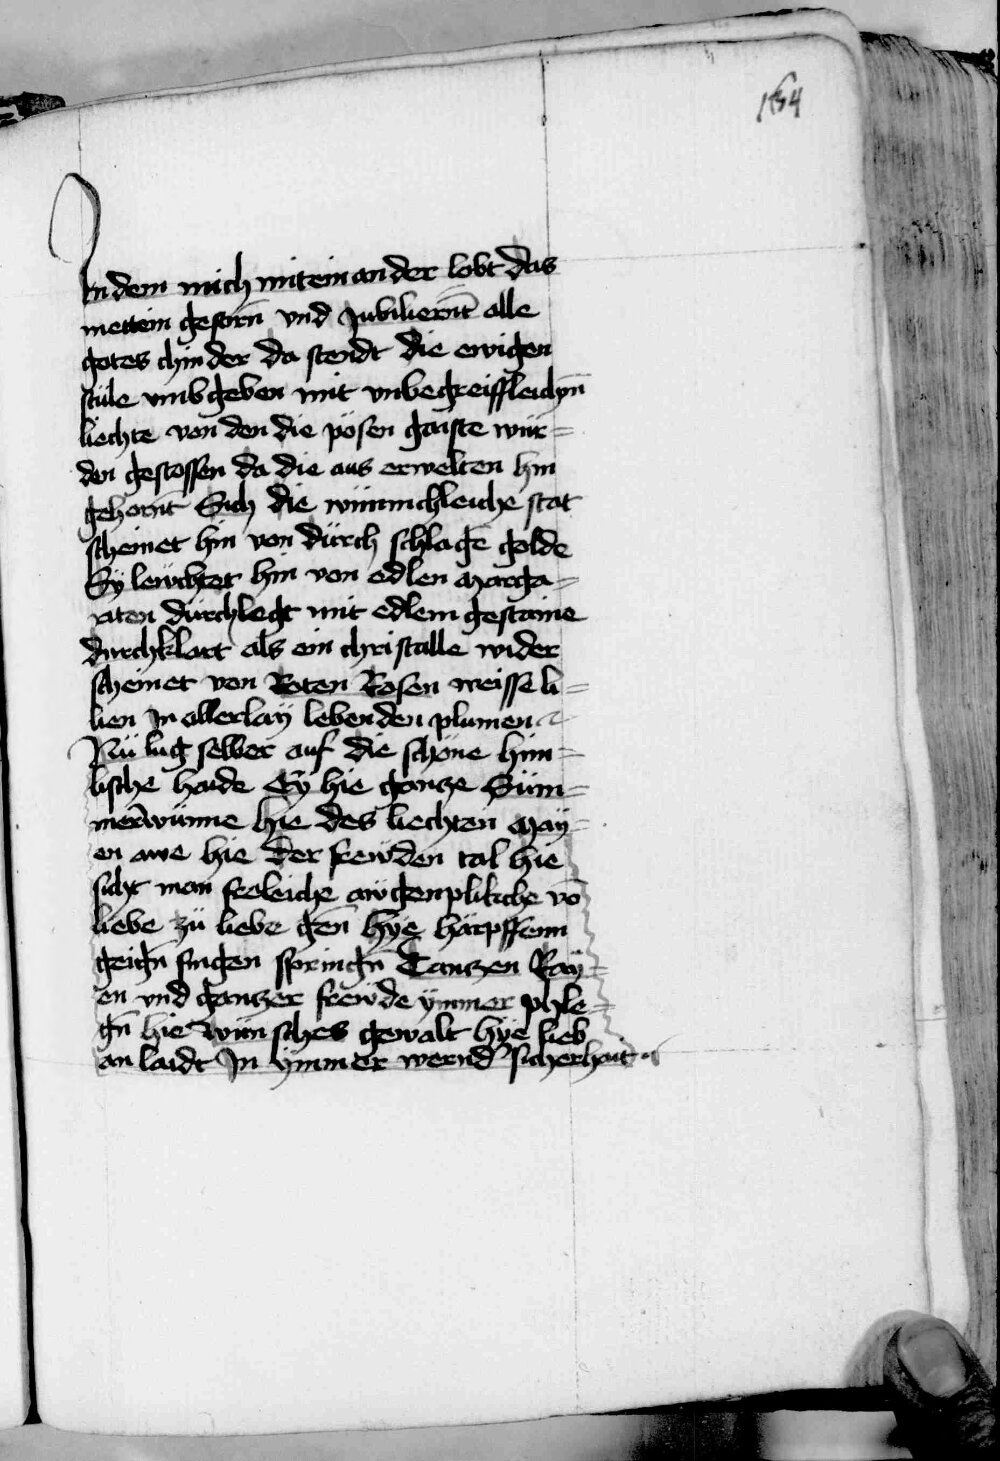 154
In dem mich mitein ander lobt das
mettein gestirn̄ vnd Jubiliernt̄ alle
gotes chinder da stendt die ewigen
stüle vmbgeben mit vnbegreiffleichn̄
liechte von den die pösen gaiste wür=
den gestossen da die aus erwelten hin
gehornt̄ Sich die wünnichleiche stat
scheinet hin von dürch schlagē golde
Sÿ leüchtet hin von edlen marga=
riten durchlegt mit edlem gestaine
durchklart als ein christalle wider
scheinet von Roten Rosen weisse li=
lien In allerlaÿ lebenden plumen
Nü lug selber auf die schöne him=
lische haide Eÿ hie gantze Süm=
mer wünne hie des liechten maÿ=
en awe hie der frewden tal hie
sicht man froleiche aügenplikche vō
liebe zü liebe gen̄ hye härpffenn
geign̄ singen springn̄ Tantzen Raÿ=
en vnd gantzer frewde ÿmmer phle=
gn̄ hie wünsches gewalt hÿe lieb
an laidt In ÿmmer wernd' sicherhait